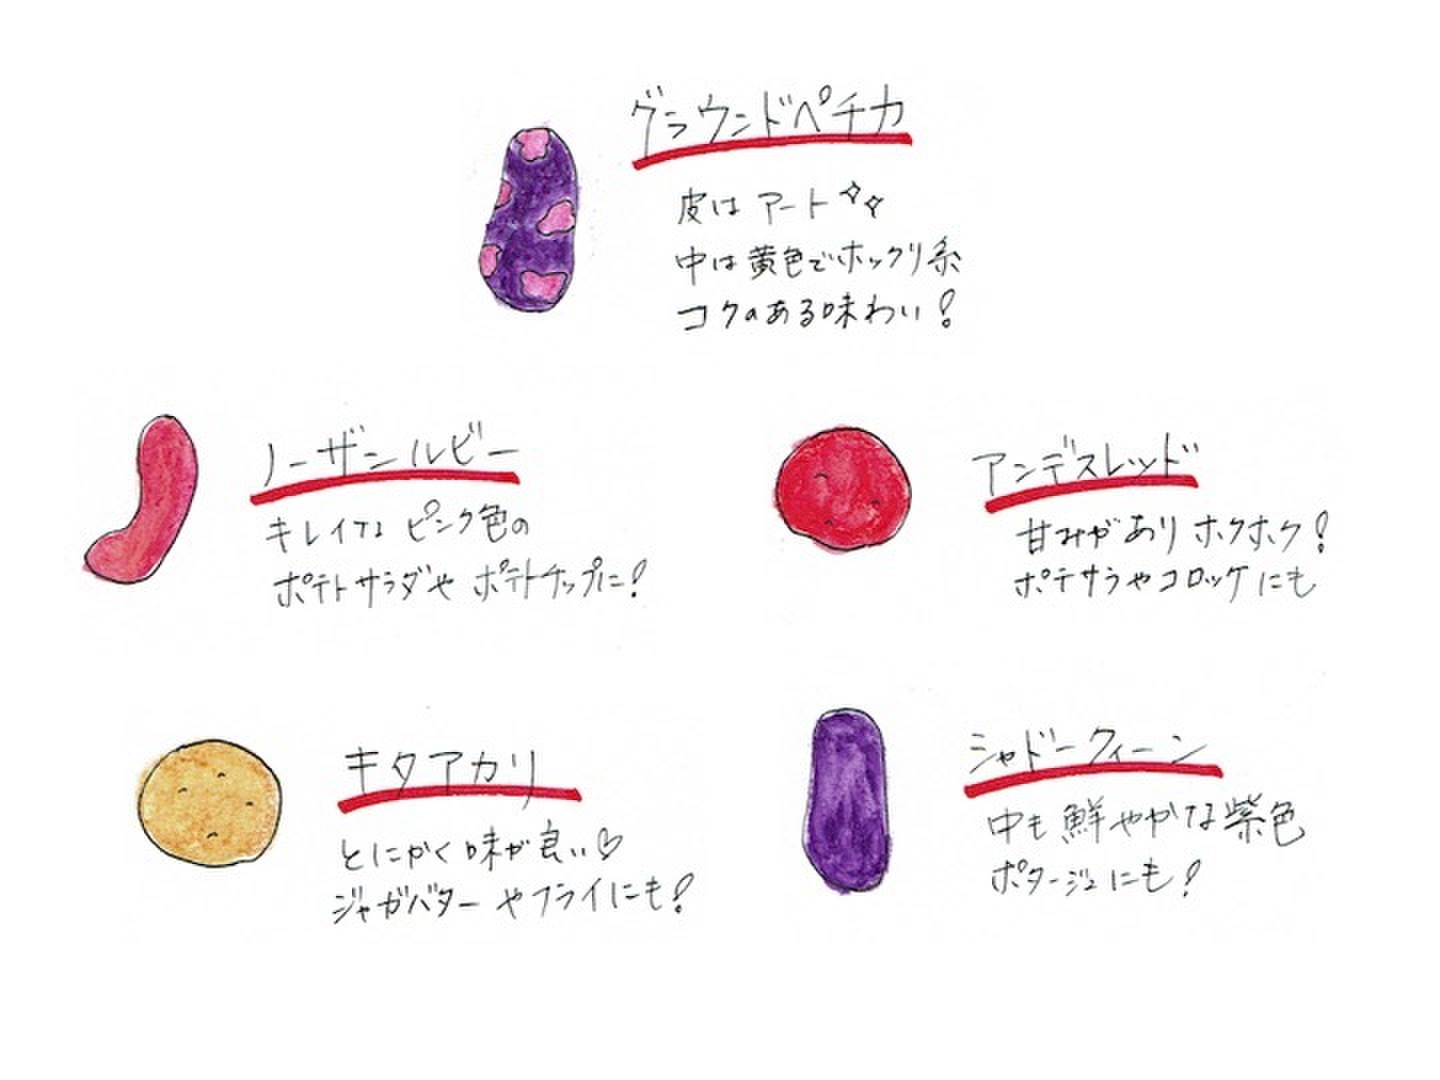 グラウンドペチカ
皮は アート✧✧
中は黄色でホックリ系
コクのある味わい!
ノーザンルビー
キレイな ピンク色の
ポテトサラダや ポテトチップに!
アンデスレッド
甘みがあり ホクホク!
ポテサラやコロッケにも
キタアカリ
とにかく味が良い♡
ジャガバターやフライにも!
シャドークィーン
中も鮮やかな紫色
ポタージュにも!